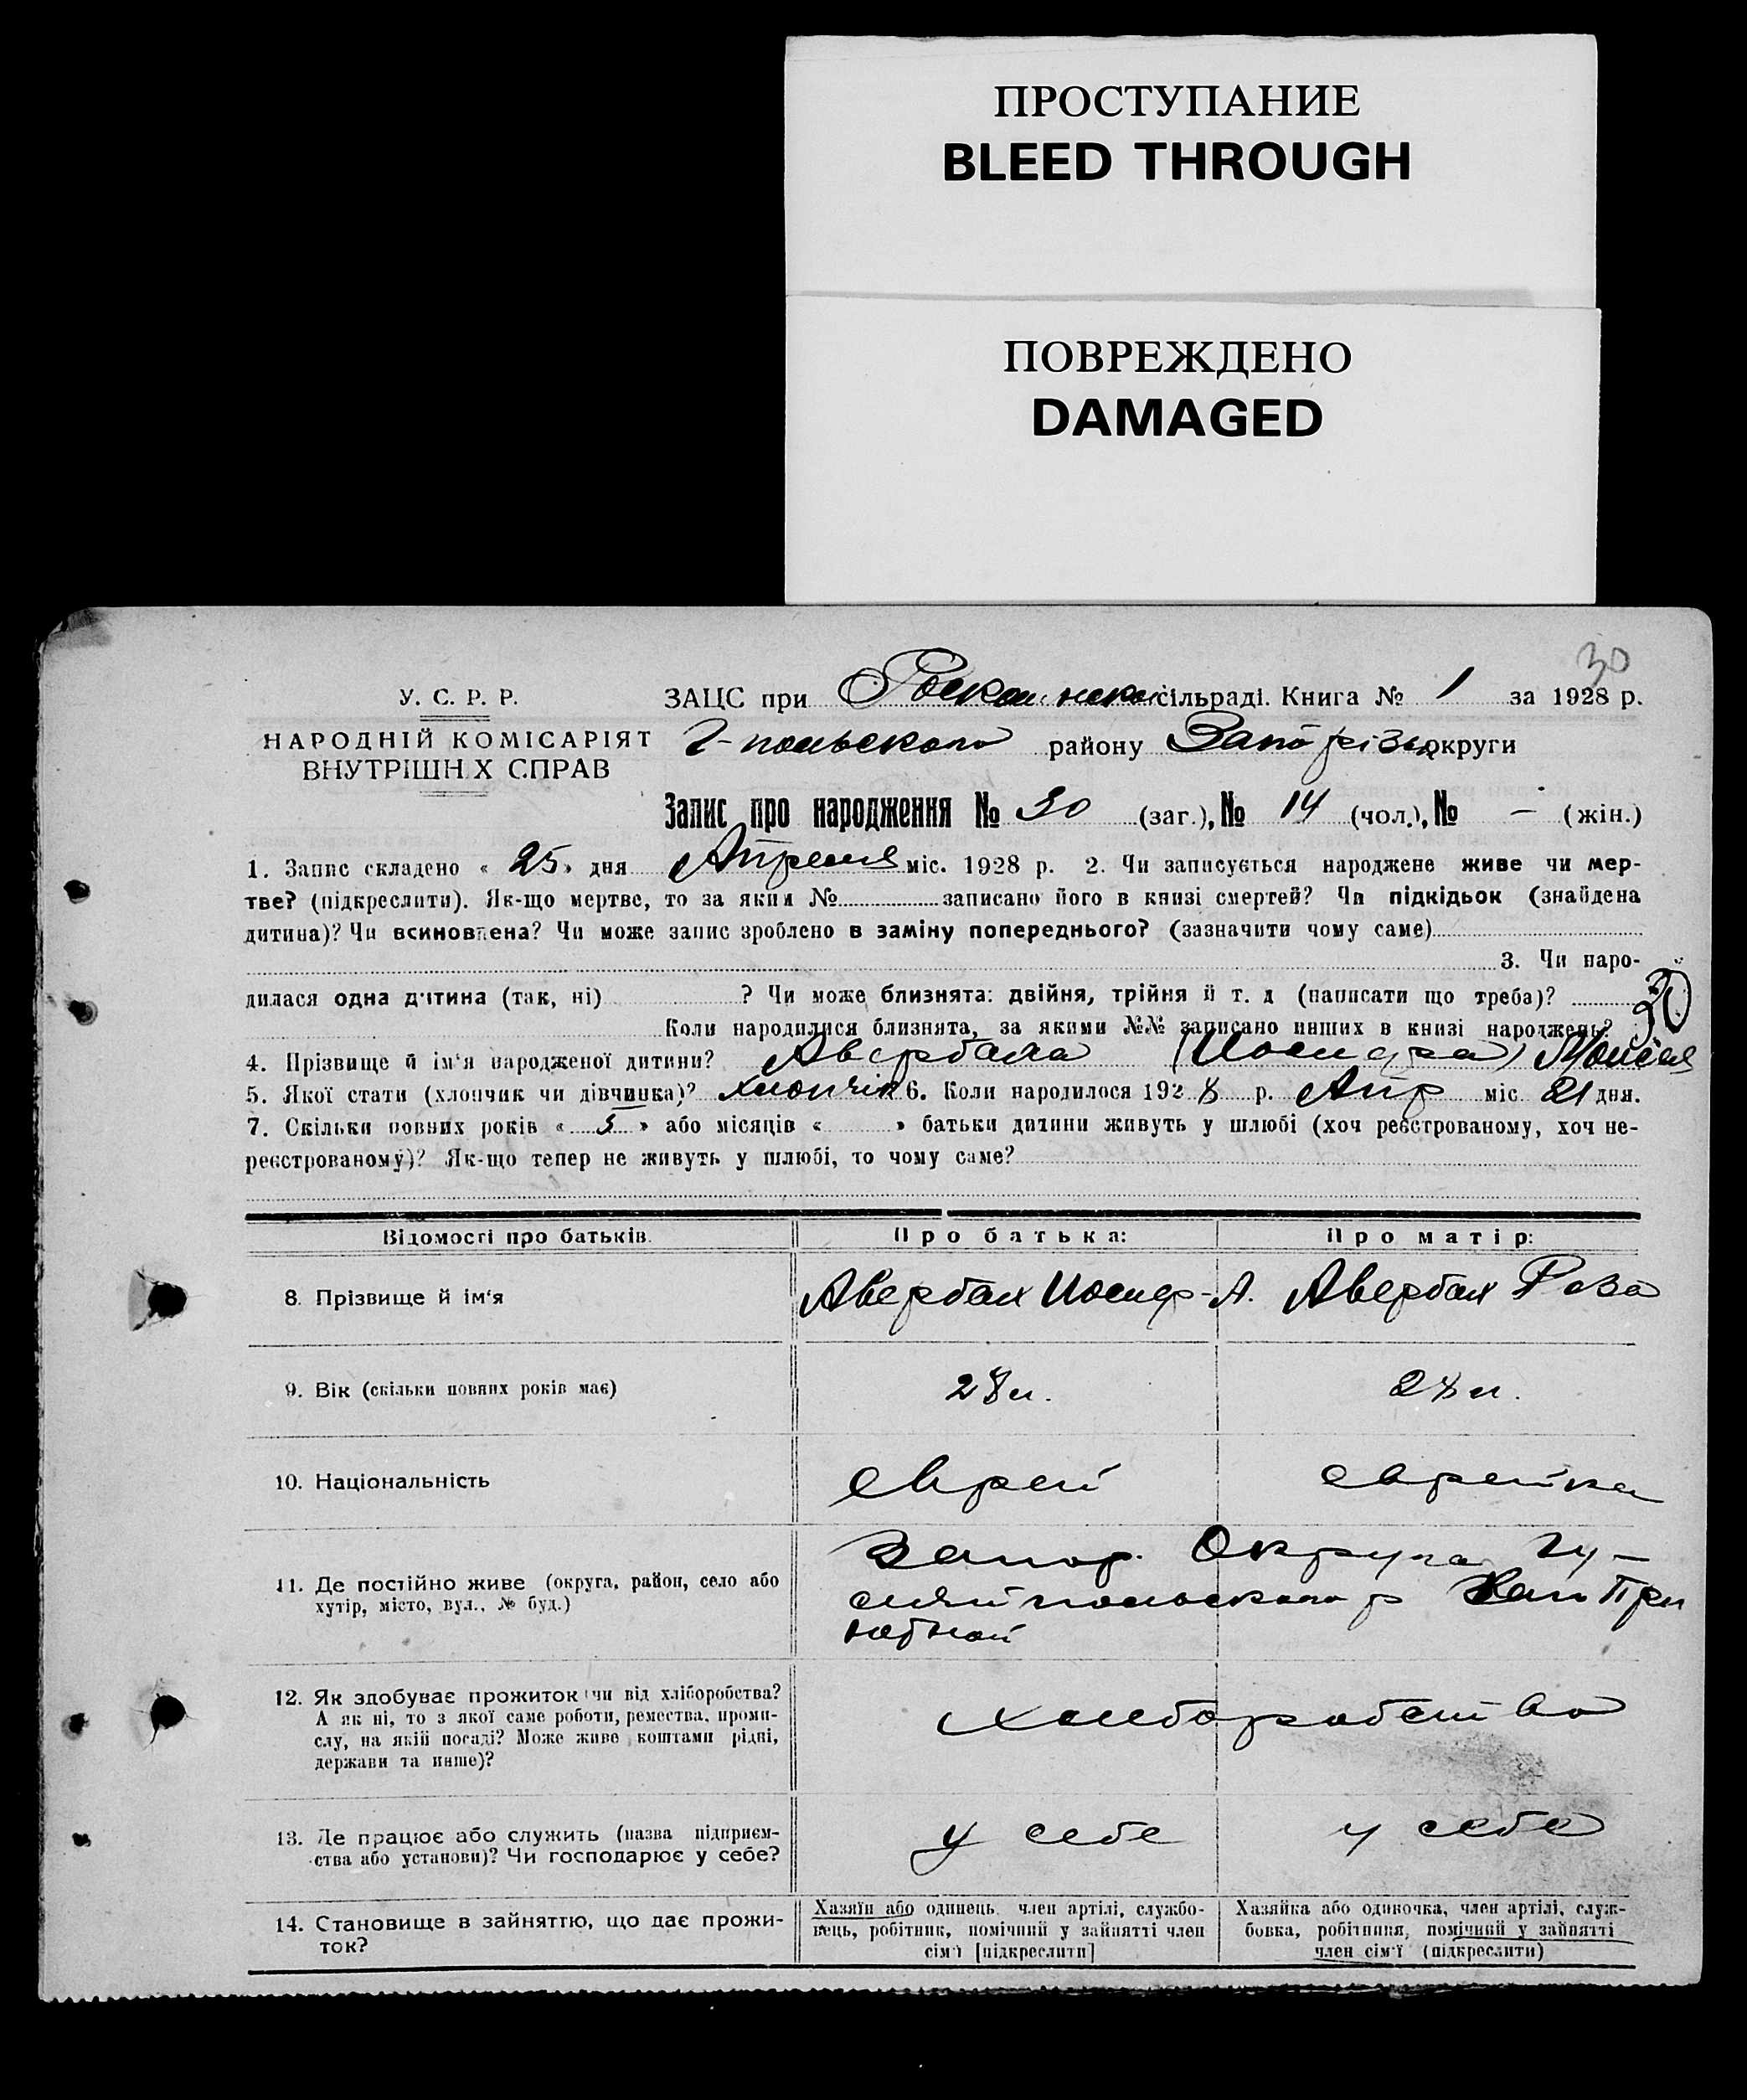 ПРОСТУПАНИЕ
BLEED THROUGH
ПОВРЕЖДЕНО
DAMAGED
30
У. С. Р. Р.
НАРОДНІЙ КОМІСАРІЯТ
ВНУТРІШН.Х СПРАВ
ЗАЦС при сільраді. Книга № 1 за 1928 р.
Г-польского району Запорізь округи
Запис про народження № 30 (заг.), № 14 (чол.), № - (жін.)
1. Запис складено « 25 » дня Апреля міс. 1928 р. 2. Чи записується народжене живе чи мер-
тве? (підкреслити). Як-що мертве, то за яким № записано його в книзі смертей? Чи підкідьок (знайдена
дитина)? Чи всиновлена? Чи може запис зроблено в заміну попереднього? (зазначити чому саме)
3. Чи наро-
дилася одна дитина (так, ні) ? Чи може близнята: двійня, трійня й т. д (написати що треба)?
30
Коли народилися близнята, за якими №№ записано инших в книзі народжень?
4. Прізвище й ім'я народженої дитини? Авербаха (Иосифа) Моисея
5. Якої стати (хлопчик чи дівчинка)? хлопчік 6. Коли народилося 1928 р. Апр міс 21 дня.
7. Скільки повних років « 5 » або місяців « » батьки дитини живуть у шлюбі (хоч реєстрованому, хоч не-
реєстрованому)? Як-що тепер не живуть у шлюбі, то чому саме?
Відомості про батьків. Про батька: Про матір:
8. Прізвище й ім'я Авербах Иосиф-А. Авербах Роза
9. Вік (скільки повних років має) 28 л. 28 л.
10. Національність еврей еврейка
11. Де постійно живе (округа, район, село або
хутір, місто, вул., № буд.)
Запор. Округа Гу-
ляйпольского р При
12. Як здобуває прожиток (чи від хліборобства?
А як ні, то з якої саме роботи, ремества, проми-
слу, на якій посаді? Може живе коштами рідні,
держави та инше)?
хлеборобство
13. Де працює або служить (назва підприєм-
ства або установи)? Чи господарює у себе?
у себе у себе
14. Становище в зайняттю, що дає прожи-
ток?
Хазяїн або одинець член артілі, службо-
вець, робітник, помічний у зайнятті член
сім'ї [підкреслити]
Хазяйка або одиночка, член артілі, служ-
бовка, робітниця, помічний у зайнятті
член сім'ї (підкреслити)